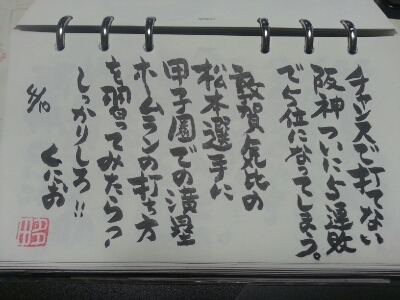 チャンスで打てない
阪神ついに5連敗
で5位になってしまう。
敦賀気比の
松本選手に
甲子園での満塁
ホームランの打ち方
を習ってみたらっ
しっかりしろ!!
くにお
5/10